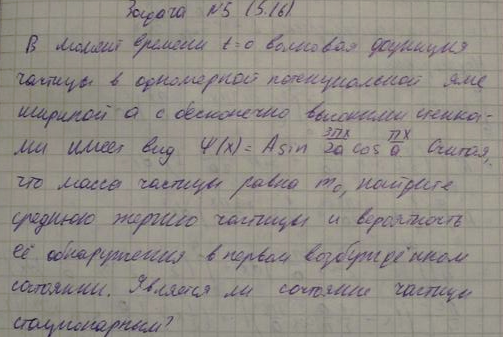 Задача №5 (5.16)
В момент времени t=0 волновая функция
частицы в одномерной потенциальной яме
шириной a с бесконечно высокими стенка-
ми имеет вид Ψ(x) = A sin 3πx/2a cos πx/a. Считая,
что масса частицы равна m₀, найдите
среднюю энергию частицы и вероятность
её обнаружения в первом возбуждённом
состоянии. Является ли состояние частицы
стационарным?